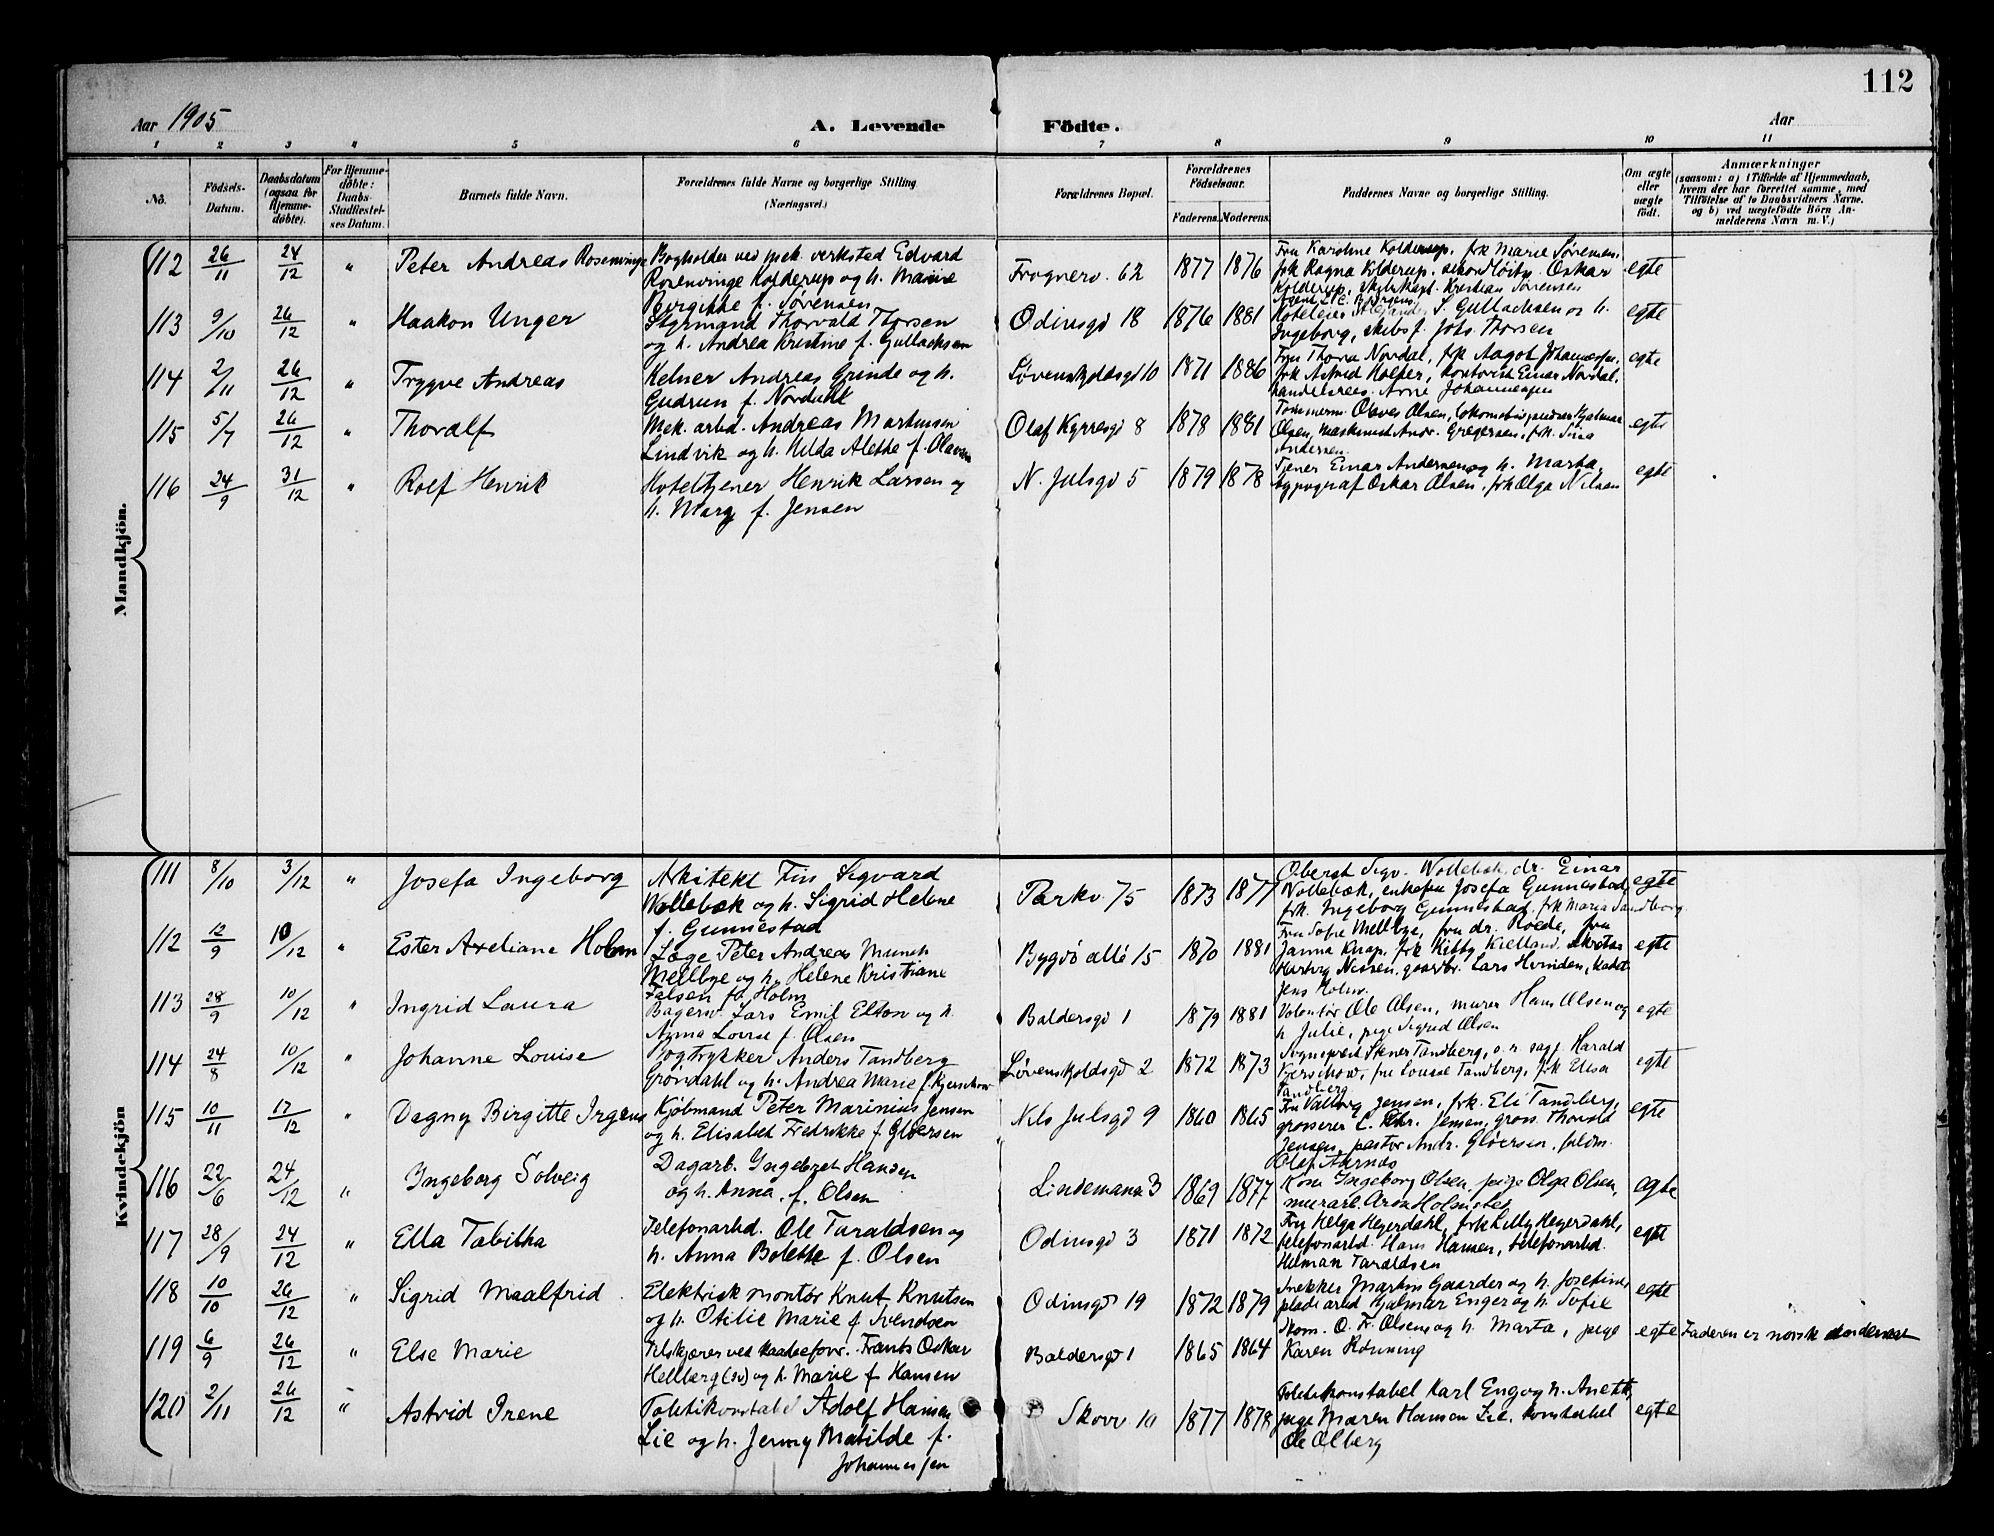 112
Aar 1905
A. Levende Födte.
Aar
1 2 3 4 5 6 7 8 9 10 11
No.
Födsels-Datum.
Daabsdatum (ogsaa for Hjemme-döbte).
For Hjemme-döbte: Daabs-Stadfæstel-ses Datum.
Barnets fulde Navn.
Forældrenes fulde Navne og borgerlige Stilling (Næringsvei.)
Forældrenes Bopæl.
Forældrenes Födselsaar.
Faderens. Moderens.
Faddernes Navne og borgerlige Stilling.
Om ægte eller uægte födt.
Anmærkninger
(saasom: a) i Tilfælde af Hjemmedaab, hvem der har forrettet samme, med Tilföielse af to Daabsvidners Navne. og b) ved uægtefödte Börn An-melderens Navn m. V.)
Mandkjön.
112 26/11 24/12 " Peter Andreas Rosenvinge Bogholder ved mek. verksted Edvard Frognerv. 62 1877 1876 Fru Karoline Kolderup, frk Marie Sørensen, egte
Rosenvinge Kolderup og h. frk Ragna Kolderup, Oskar
Birgitte f. Sørensen Kolderup, Kristian Sørensen
113 9/10 26/12 " Haakon Unger Styrmand Thorvald Thorsen Odinsgd 18 1876 1881 S. Gullachsen og h. egte
og h. Andrea Kristine f. Gullachsen Ingeborg, skibsf. Johs. Thorsen
114 2/11 26/12 " Trygve Andreas Kelner Andreas Grinde og h. Løvenskjoldsgd 10 1871 1886 Fru Thora Nordal, frk Aagot Johannesen, egte
Gudrun f. Nordahl frk Astrid Holter, kontorist Einar Nordal,
handelsreis. Arne Johannessen
115 5/7 26/12 " Thoralf Mek. arbd. Andreas Martinsen Olaf Kyrresgd 8 1878 1881 Tømmerm. Olaves Olsen, Hjalmar egte
Lindvik og h. Hilda Alette f. Olavsen Olsen, maskinist Andr. Gregersen, frk. Sina
Andersen.
116 24/9 31/12 " Rolf Henrik Hoteltjener Henrik Larsen og N. Julsgd 5 1879 1878 Tjener Einar Andersen og h. Marta, egte
h. Marg f. Jensen typograf Oskar Olsen, frk Olga Nilsen
Kvindekjön
111 8/10 3/12 " Josefa Ingeborg Arkitekt Fin Sigvard Parkv 75 1873 1877 Oberst Sigv. Wollebæk, dr. Einar egte
Wollebæk og h. Sigrid Helene Wollebæk, enkefru Josefa Gunnestad,
f. Gunnestad frk. Ingeborg Gunnestad, frk Maria Sandborg
112 12/9 10/12 " Ester Axeliane Holm Læge Peter Andreas Munch Bygdø allé 15 1870 1881 Fru Sofie Mellbye, fru dr. Roede, fru egte
Mellbye og h. Helene Kristiane Janna Knap, frk Kitty Kielland, sekretær
Falsen f. Holm Nissen, gaardbr. Lars Hvinden, kadet
Jens Holm.
113 28/9 10/12 " Ingrid Laura Bagersv. Lars Emil Elton og h. Baldersgd 1 1879 1881 Volontør Ole Olsen, murer Hans Olsen og egte
Anna Lovise f. Olsen h. Julie, pige Sigrid Olsen
114 24/8 10/12 " Johanne Louise Bogtrykker Anders Tandberg Løvenskjoldsgd 2 1872 1873 Sogneprest Stener Tandberg, o. r. sagf. Harald egte
Grøndahl og h. Andrea Marie f. Kjerschow Kjerschow, fru Louise Tandberg, frk Elisa
Tandberg
115 10/11 17/12 " Dagny Birgitte Irgens Kjøbmand Peter Marinius Jensen Nils Julsgd 9 1860 1865 Fru Valborg Jensen, frk. Eli Tandberg, egte
og h. Elisabet Fredrikke f. Gløersen grosserer C. Chr. Jensen, gross. Thorvald
Jensen, pastor Andr. Gløersen,
Olaf Aarnæs
116 22/6 24/12 " Ingeborg Solveig Dagarb. Ingebret Hansen Lindemansg 3 1869 1877 Kone Ingeborg Olsen, pige Olga Olsen, egte
og h. Anna, f. Olsen murarb. Aron Holmsted
117 28/9 24/12 " Ella Tabitha Telefonarbd. Ole Taraldsen og Odinsgd 3 1871 1872 Fru Helga Heyerdahl, frk Lilly Heyerdahl, egte
h. Anna Bolette f. Olsen telefonarbd. Hans Hansen, telefonarbd.
Helman Taraldsen
118 10/10 26/12 " Sigrid Maalfrid Elektrisk montør Knut Knutsen Odinsgd 19 1872 1879 Snekker Martin Gaarder og h. Josefine, egte
og h. Otilie Marie f. Svendsen pladearbd Hjalmar Enger og h. Sofie
119 6/9 26/12 " Else Marie Tilskjærer ved Frants Oskar Baldersgd 1 1865 1864 Skom. O. Fr. Olsen og h. Marta, pige egte Faderen er norsk undersaat
Hellberg (sv) og h. Marie f. Hansen Karen Rønning
120 2/11 26/12 " Astrid Irene Politikonstabel Adolf Hansen Skovv 10 1877 1878 Politikonstabel Karl Eng og h. Anette, egte
Lie og h. Jenny Matilde f. pige Maren Hansen Lie, konstabel
Johannessen Ole Olberg